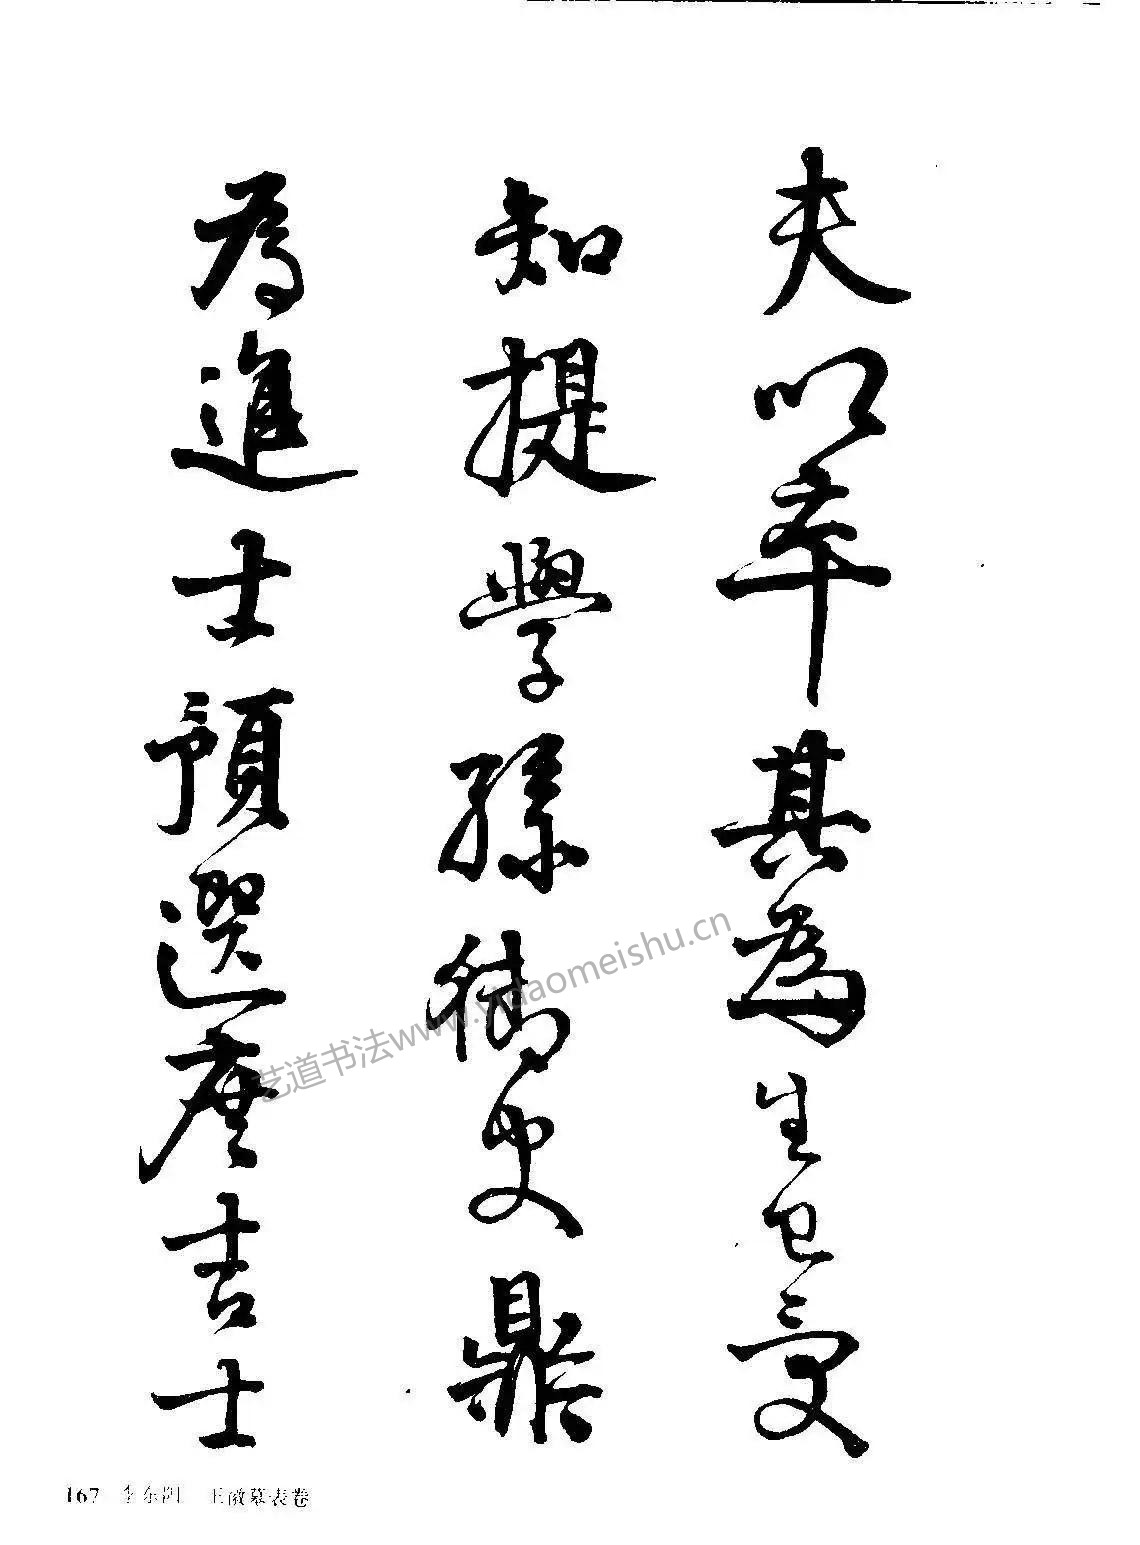 夫以卒其為生已受
知提學孫御史鼎
為進士預選庶吉士
艺道书法www.yidaomeishu.cn
167 李东阳 王徽墓表卷